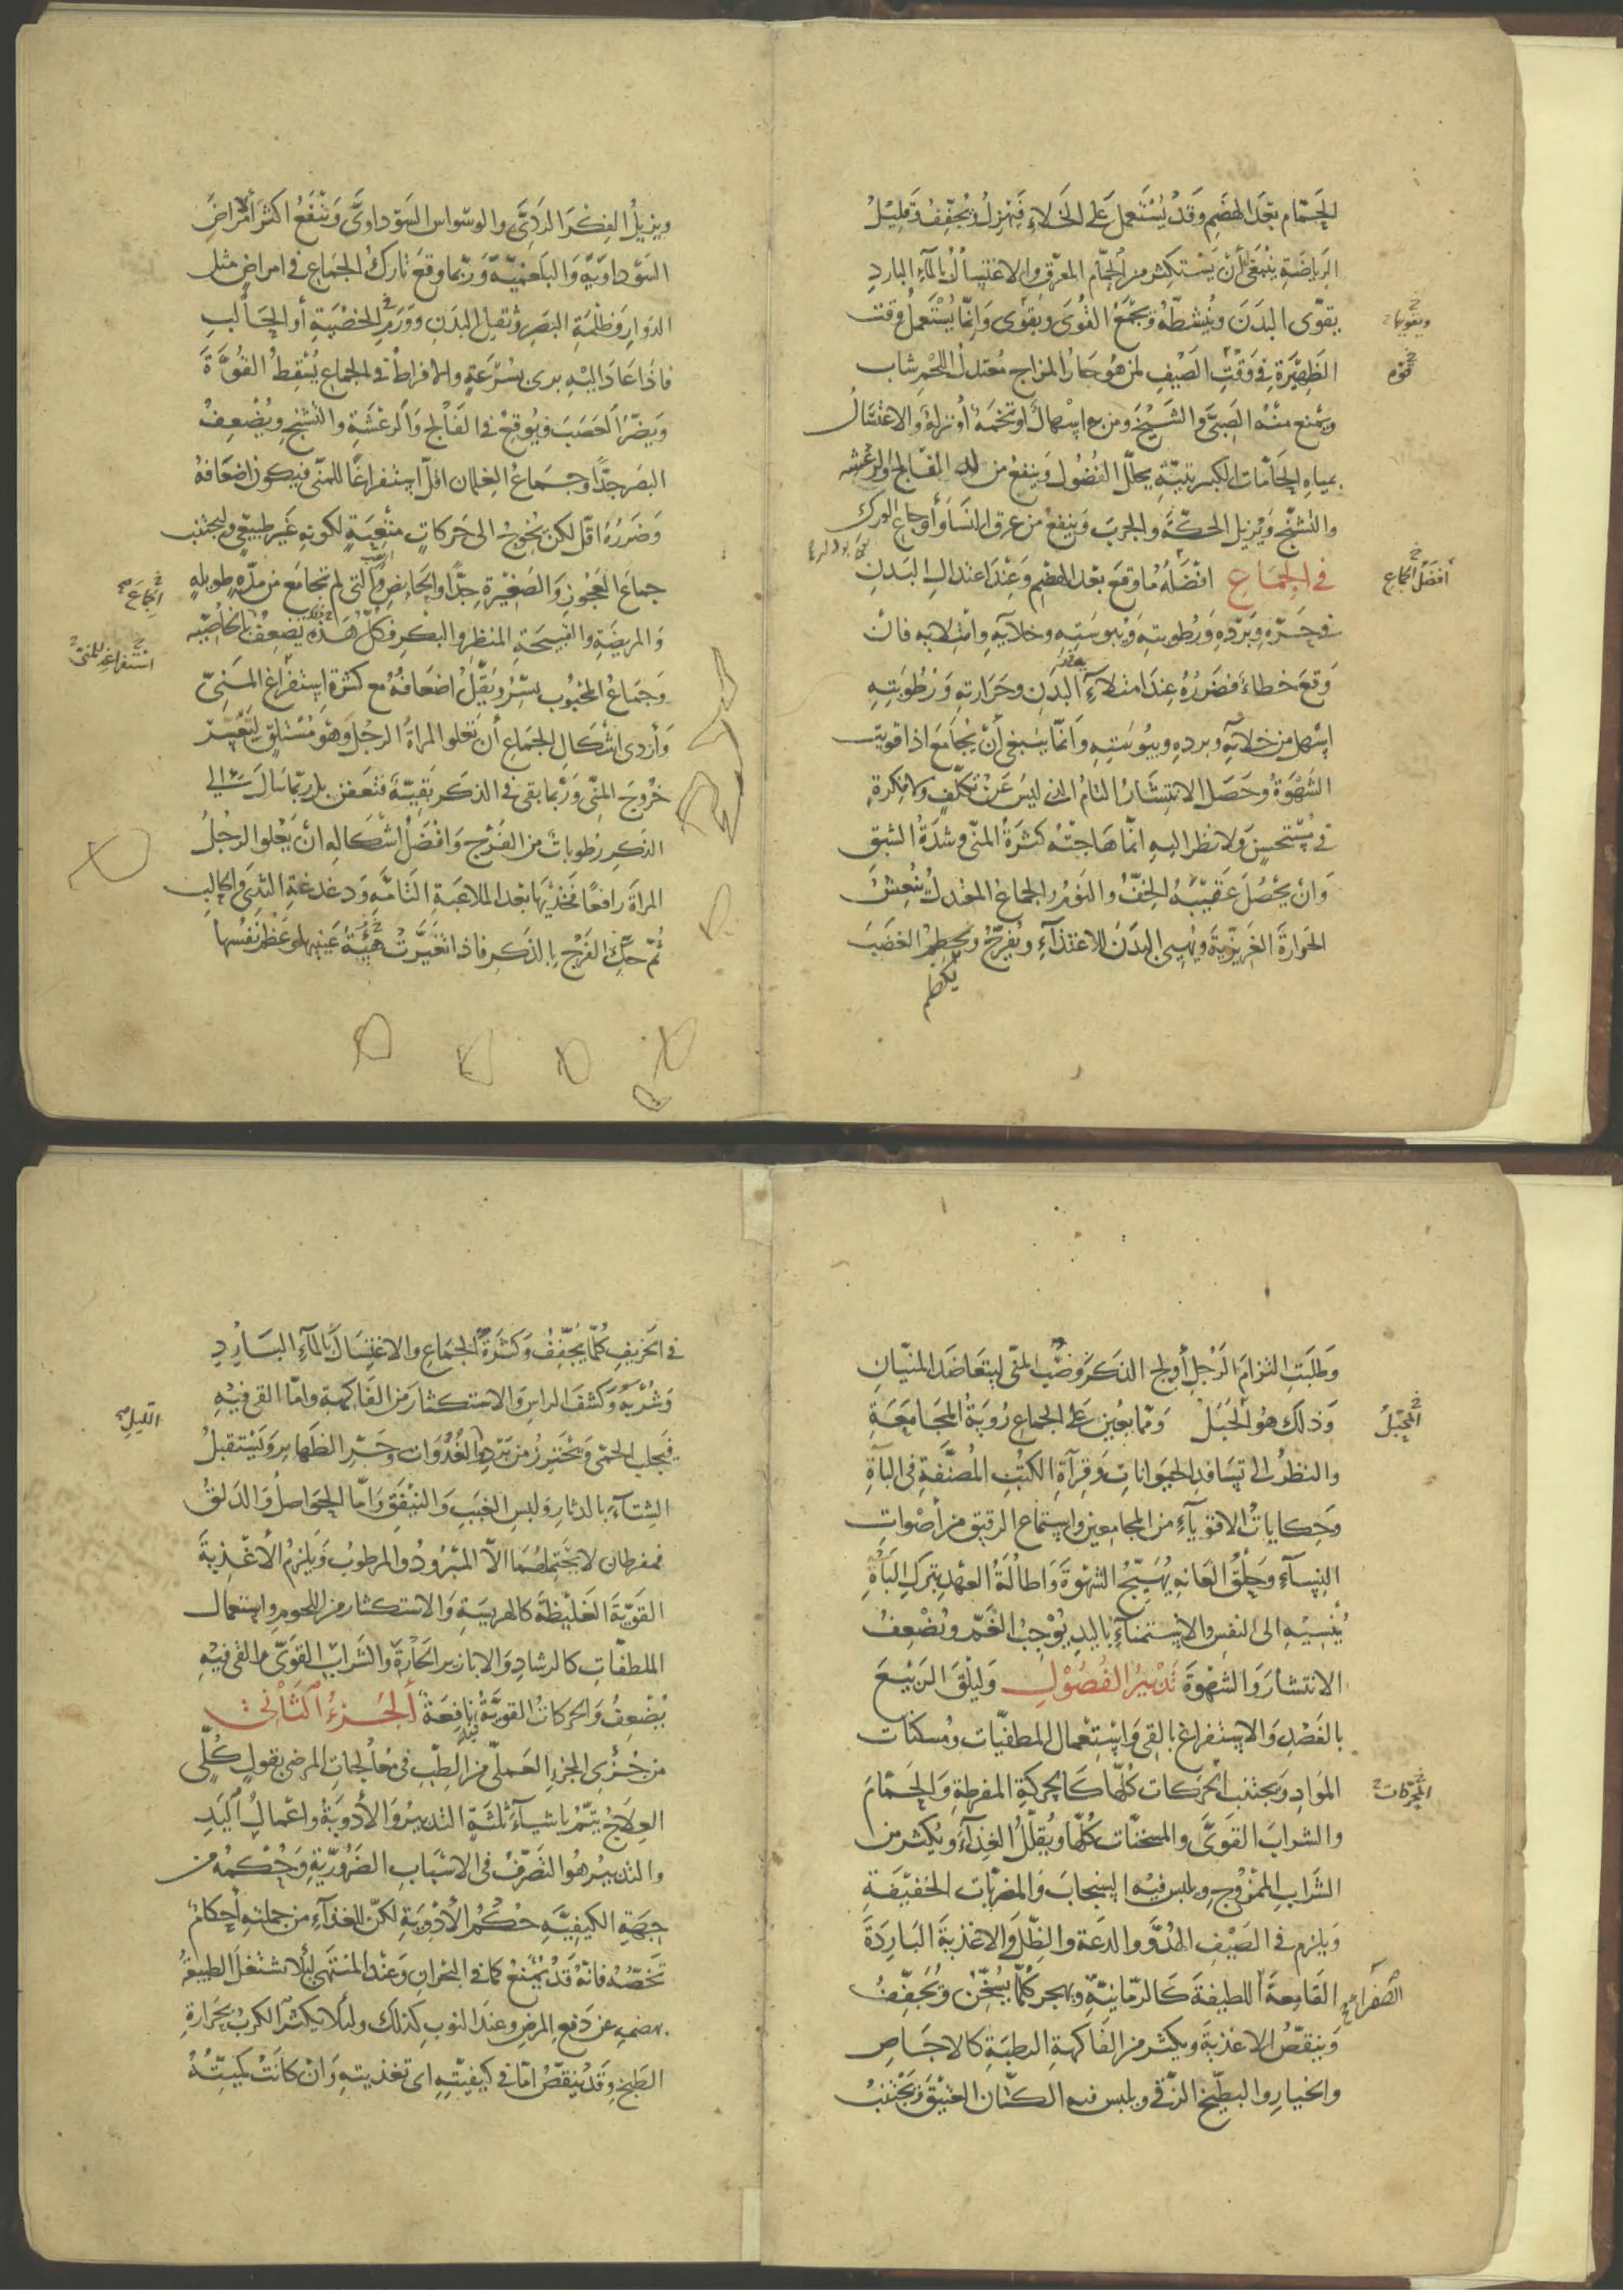 الحمّام بعد الهضم وقد يُستعمل على الخلاء فيهزل ويجفف وقليل
الرياضة ينبغي أن يستكثر من الحمّام المعرّق والاغتسال بالماء البارد
يقوّى البدن وينشطه ويجمع القوى ويقوى وإنما يستعمل وقت
ويقويها
الظهيرة في وقت الصيف لمن هو حار المزاج معتدل اللحم شاب
ويمنع منه الصبي والشيخ ومن به اسهال او تخمة أو نزلة والاغتسال
بمياه الحمّامات الكبريتية يحلل الفضول وينفع من الفالج والرعشة
والتشنج ويزيل الحكة والجرب وينفع من عرق النسا وأوجاع الورك
في الجماع افضله ما وقع بعد الهضم وعند اعتدال البدن
أفضل الجماع
في حره وبرده ورطوبته ويبوسته وخلائه وامتلائه فان
وقع خطاء فضرره عند امتلاء البدن وحرارته ورطوبته
اسهل من خلائه وبرده ويبوسته وانما ينبغي أن يجامع اذا قويت
الشهوة وحصل الانتشار التام الذي ليس عن تكلف ولا فكرة
في مستحسن ولا نظر اليه انما هاجته كثرة المني وشدة الشبق
وان يحصل عقيبه الخف والنوم والجماع المعتدل ينعش
الحرارة الغريزية ويهيئ البدن للاغتذاء ويفرح ويحطم الغضب
يكظم
ويزيل الفكر الردي والوسواس السوداوي وينفع اكثر الأمراض
السوداوية والبلغمية وربما وقع تارك الجماع في امراض مثل
الدوار وظلمة البصر وثقيل البدن وورم الخصية أو الحالب
فاذا عاد اليه برئ بسرعة والافراط في الجماع يسقط القوة
ويضر العصب فيوقع في الفالج والرعشة والتشنج ويضعف
البصر جدا وجماع الغلمان اقل استفراغا للمني فيكون اضعافه
وضرره اقل لكن يحوج الى حركات متعبة لكونه غير طبيعي وليجتنب
جماع العجوز والصغيرة جدا والحائض والتي لم تجامع من مدة طويلة
الجماع
والمريضة والقبيحة المنظر والبكر فكل هذه يضعف بالخاصية
وجماع المحبوب يسر ويقل اضعافه مع كثرة استفراغ المني
استفراغه للمني
وأردى اشكال الجماع أن تعلو المرأة الرجل وهو مستلق لتعسر
خروج المني وربما بقي في الذكر بقية فتعفن بل ربما سال الى
الذكر رطوبات من الفرج وافضل اشكاله ان يعلو الرجل
المرأة رافعا فخذيها بعد الملاعبة التامة ودغدغة الثدي والحالب
ثم حك الفرج بالذكر فاذا تغيرت هيئة عينيها وعظم نفسها
وطلبت التزام الرجل أولج الذكر وصب المني ليتعاضد المنيان
وذلك هو الحبل ومما يعين على الجماع رؤية المجامعة
المحبل
والنظر الى تسافد الحيوانات وقراءة الكتب المصنفة في الباه
وحكايات الاقوياء من المجامعين واستماع الرقيق من أصوات
النساء وحلق العانه يهيج الشهوة واطالة العهد بترك الباه
ينسيه الى النفس والاستمناء باليد يوجب الغم ويضعف
الانتشار والشهوة تدبير الفصول وليلق الربيع
بالفصد والاستفراغ بالقى واستعمال المطفيات ومسكنات
المواد ويجتنب الحركات كلها كالحركة المفرطة والحمام
المحركات
والشراب القوي والمسخنات كلها ويقلل الغذاء ويكثر من
الشراب الممزوج ويلبس فيه السنجاب والمضربات الخفيفة
ويلزم في الصيف الهدو والدعة والظل والاغذية الباردة
القامعة اللطيفة كالرمانية ويهجر كلما يسخن ويجفف
للصفراء
وينقص الاغذية ويكثر من الفاكهة الرطبة كالاجاص
والخيار والبطيخ الرقي ويلبس فيه الكتان العتيق ويجتنب
في الخريف كلما يجفف وكثرة الجماع والاغتسال بالماء البارد
وشربه وكشف الراس والاستكثار من الفاكهة واما القى فيه
فيجلب الحمى ويحترز من برد الغدوات وحر الظهاير ويستقبل
الشتاء بالدثار ولبس الخبب والنيفق واما الحواصل والدلق
فمفرطان لا يحتملهما الا المبرود والمرطوب ويلزم الأغذية
القوية الغليظة كالهريسة والاستكثار من اللحوم واستعمال
الملطفات كالرشاد والابازير الحارة والشراب القوي والقى فيه
يضعف والحركات القوية نافعة الجزء الثاني
من جزئي الجزء العملي من الطب في معالجات المرضى بقول كلي
العلاج يتم باشياء ثلثة التدبير والأدوية واعمال اليد
والتدبير هو التصرف في الاسباب الضرورية وحكمه من
جهة الكيفية حكم الأدوية لكن للغذاء من جملته أحكام
تخصه فانه قد يمنع كما في البحران وعند المنتهى لئلا تشتغل الطبيعة
بهضمه عن دفع المرض وعند النوب كذلك ولئلا يكثر الكرب بحرارة
الطبخ وقد ينقص اما في كيفيته اي تغذيته وان كانت كميته